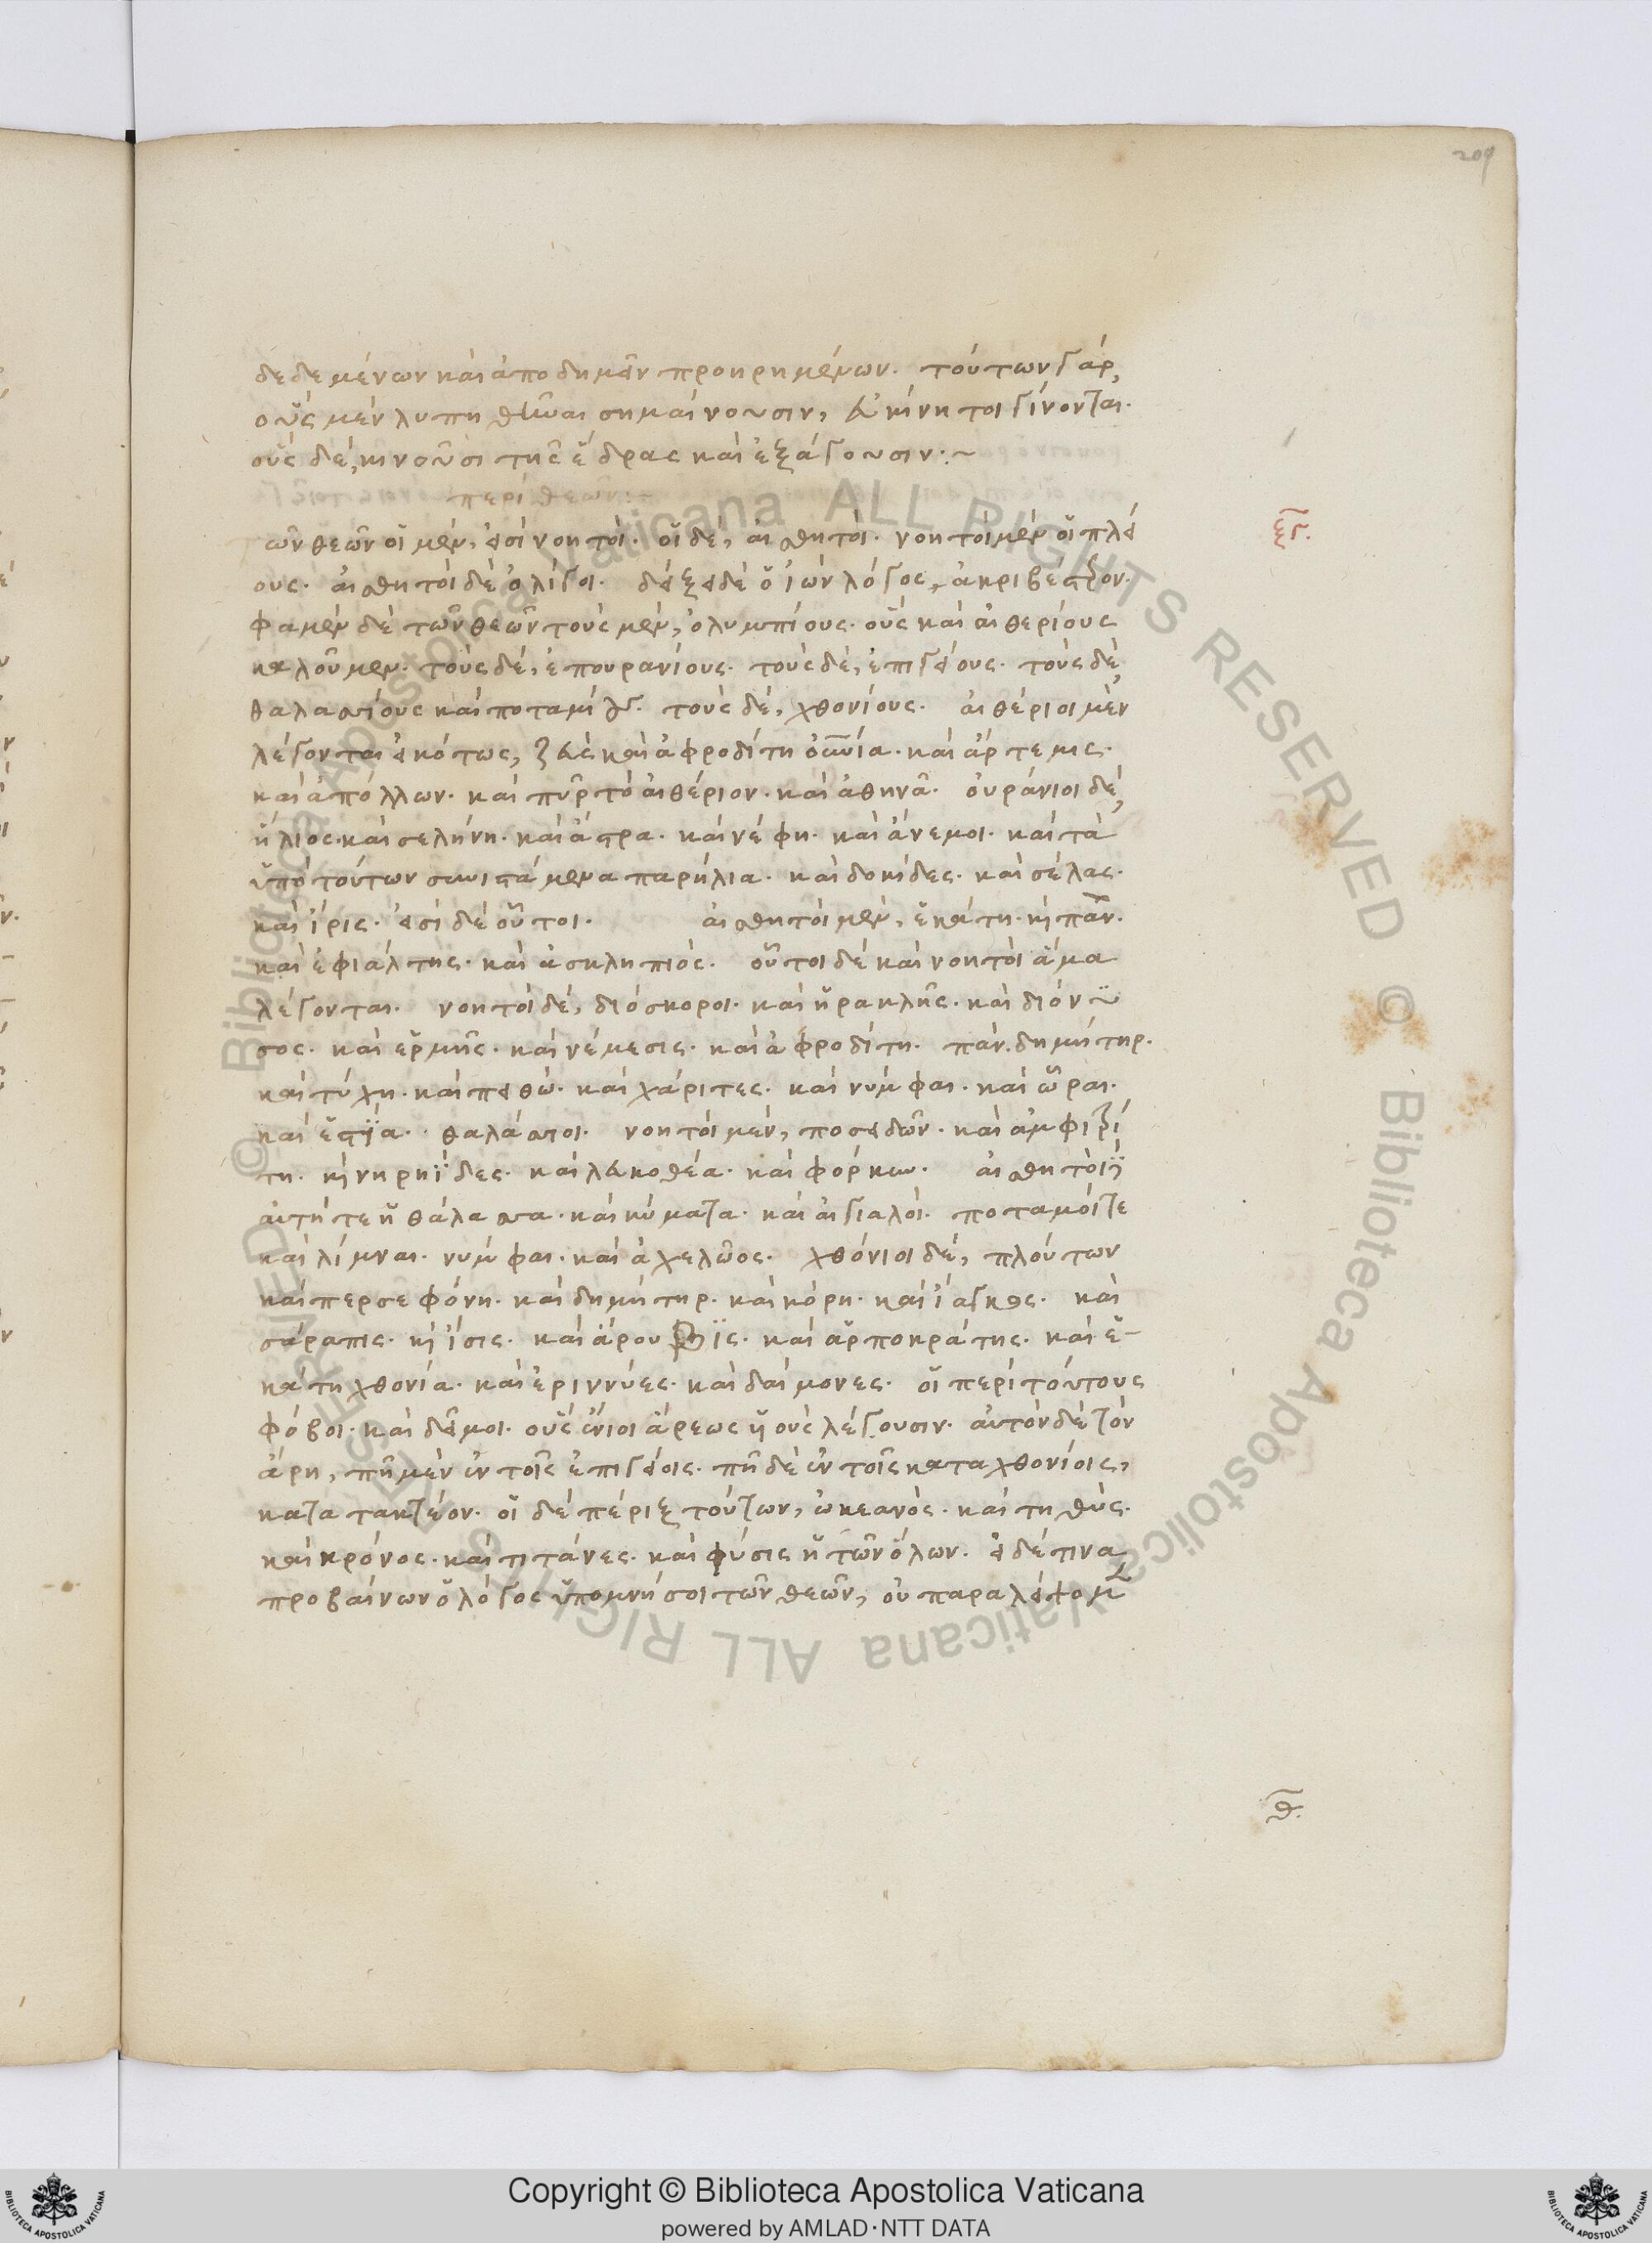 209
δεδεμένων καὶ ἀποδημεῖν προῃρημένων. τούτων γάρ,
οὓς μὲν λυπηθῆναι σημαίνουσιν, ἀκίνητοι γίνονται.
οὓς δέ, κινοῦσι τῆς ἕδρας καὶ ἐξάγουσιν:~
περὶ θεῶν:~
ξγ.
ῶν θεῶν οἱ μέν, εἰσὶ νοητοί. οἱ δέ, αἰσθητοί. νοητοὶ μὲν οἱ πλεί
ους. αἰσθητοὶ δὲ ὀλίγοι. δείξει δὲ ὁ ἰὼν λόγος, ἀκριβέστερον.
φαμὲν δὲ τῶν θεῶν τοὺς μέν, ὀλυμπίους. οὓς καὶ αἰθερίους
καλοῦμεν. τοὺς δέ, ἐπουρανίους. τοὺς δέ, ἐπιγείους. τοὺς δὲ,
θαλασσίους καὶ ποταμίους. τοὺς δέ, χθονίους. αἰθέριοι μὲν
λέγονται εἰκότως, ζεὺς καὶ ἀφροδίτη οὐρανία. καὶ ἄρτεμις.
καὶ ἀπόλλων. καὶ πῦρ τὸ αἰθέριον. καὶ ἀθηνᾶ. οὐράνιοι δέ,
ἥλιος. καὶ σελήνη. καὶ ἄστρα. καὶ νέφη. καὶ ἄνεμοι. καὶ τὰ
ὑπὸ τούτων συνιστάμενα παρήλια. καὶ δοκίδες. καὶ σέλας.
καὶ ἶρις. εἰσὶ δὲ οὗτοι. αἰσθητοὶ μέν, ἑκάτη. καὶ πάν.
καὶ ἐφιάλτης. καὶ ἀσκληπιός. οὗτοι δὲ καὶ νοητοὶ ἅμα
λέγονται. νοητοὶ δέ, διόσκοροι. καὶ ἡρακλῆς. καὶ διόνυ
σος. καὶ ἑρμῆς. καὶ νέμεσις. καὶ ἀφροδίτη. πάν. δημήτηρ.
καὶ τύχη. καὶ πειθώ. καὶ χάριτες. καὶ νύμφαι. καὶ ὧραι.
καὶ ἑστΐα. θαλάσσιοι. νοητοὶ μέν, ποσειδῶν. καὶ ἀμφιτρί
τη. καὶ νηρηΐδες. καὶ λευκοθέα. καὶ φόρκυν. αἰσθητοὶ
αὐτή τε ἡ θάλασσα. καὶ κύματα. καὶ αἰγιαλοί. ποταμοί τε
καὶ λίμναι. νύμφαι. καὶ ἀχελῶος. χθόνιοι δέ, πλούτων
καὶ περσεφόνη. καὶ δημήτηρ. καὶ κόρη. καὶ ἴαγκος. καὶ
σάραπις. καὶ ἶσις. καὶ ἄρουβϊς. καὶ ἁρποκράτης. καὶ ἑ-
κάτη χθονία. καὶ ἐριννύες. καὶ δαίμονες. οἱ περὶ τούτους
φόβοι. καὶ δεῖμοι. οὓς ἔνιοι ἄρεως ὑιοὺς λέγουσιν. αὐτὸν δὲ τὸν
ἄρη, πῆ μὲν ἐν τοῖς ἐπιγείοις. πῆ δὲ ἐν τοῖς καταχθονίοις,
κατατακτέον. οἱ δὲ πέριξ τούτων, ὠκεανός. καὶ τηθύς.
καὶ κρόνος. καὶ τιτάνες. καὶ φύσις ἡ τῶν ὅλων. εἰ δέ τινα
προβαίνων ὁ λόγος ὑπομνήσοι τῶν θεῶν, οὐ παραλείψομεν
θ.
Copyright © Biblioteca Apostolica Vaticana
powered by AMLAD·NTT DATA
© Biblioteca Apostolica Vaticana ALL RIGHTS RESERVED © Biblioteca Apostolica Vaticana ALL RIGHTS RESERVED